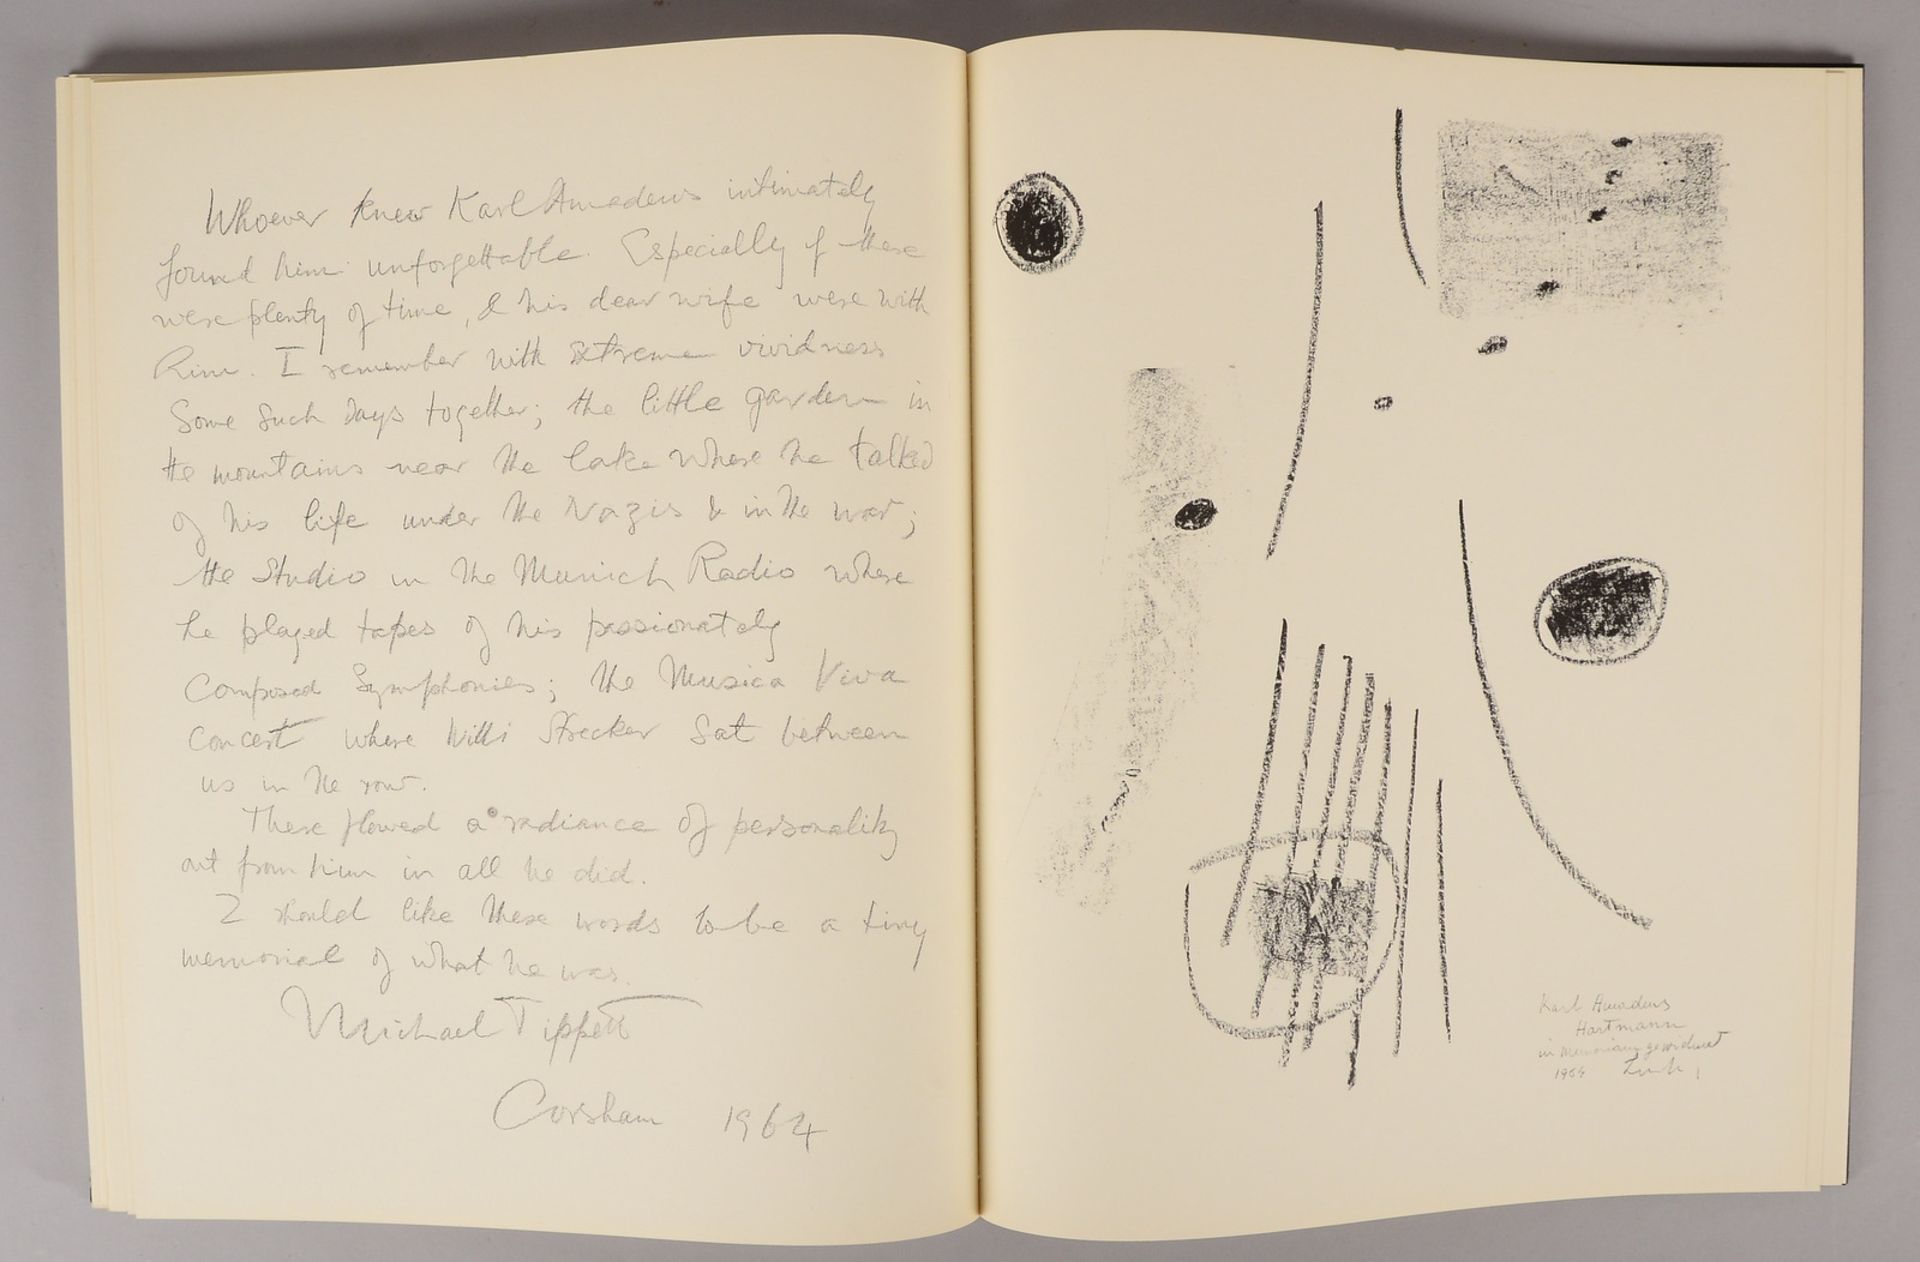 Whoever knew Karl Amadeus intimately
found him unforgettable. Especially if there
were plenty of time, & his dear wife were with
him. I remember with extreme vividness
some such days together; the little garden in
the mountains near the lake where he talked
of his life under the Nazis & in the war;
the Studio in the Munich Radio where
he played tapes of his passionately
composed Symphonies; the Musica Viva
concert where Willi Strecker sat between
us in the row.
There flowed a radiance of personality
out from him in all he did.
I should like these words to be a tiny
memorial of what he was.
Michael Tippett
Corsham 1964
Karl Amadeus
Hartmann
in memoriam gewidmet
1964